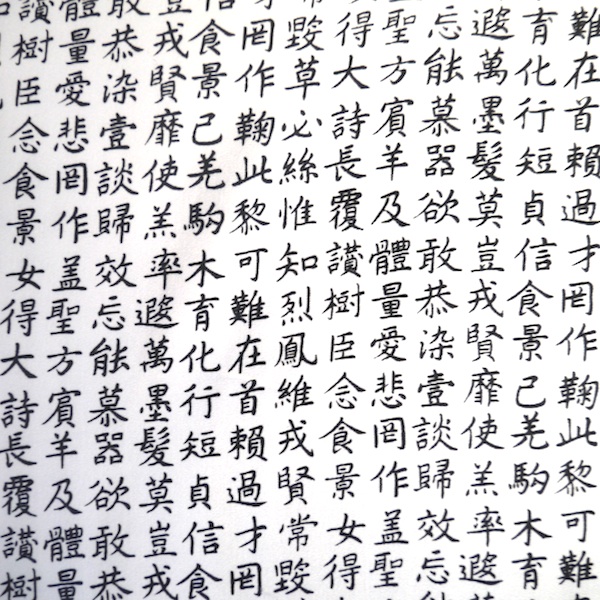 難在首賴過才罔作鞠此黎可難
育化行短貞信食景己羌駒木育
遐萬墨髮莫豈戎賢靡使羔率遐
忘能慕器欲敢恭染壹談歸效忘
聖方賓羊及體量愛悲罔作盖聖
得大詩長覆讚樹臣念食景女得
常毀草必絲惟知烈鳳維戎賢常毀
才罔作鞠此黎可難在首賴過才罔
信食景己羌駒木育化行短貞信食
豈戎賢靡使羔率遐萬墨髮莫豈戎
敢恭染壹談歸效忘能慕器欲敢恭
體量愛悲罔作盖聖方賓羊及體量
讚樹臣念食景女得大詩長覆讚樹